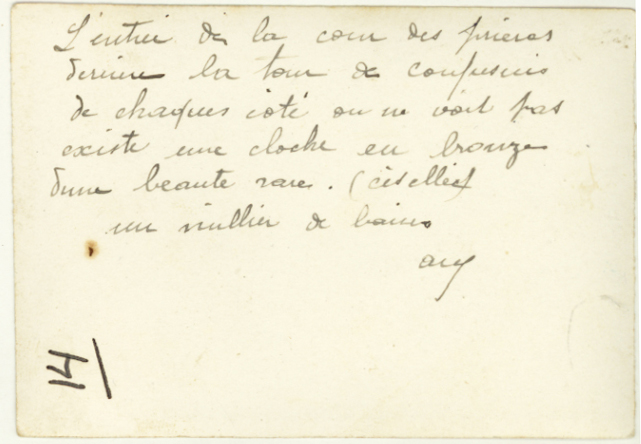 L'entrée de la cour des prières
derriere la tour de confusius
de chaques coté on ne voit pas
existe une cloche en bronze
dune beaute rare. (ciselliée)
un millier de baisers
14/